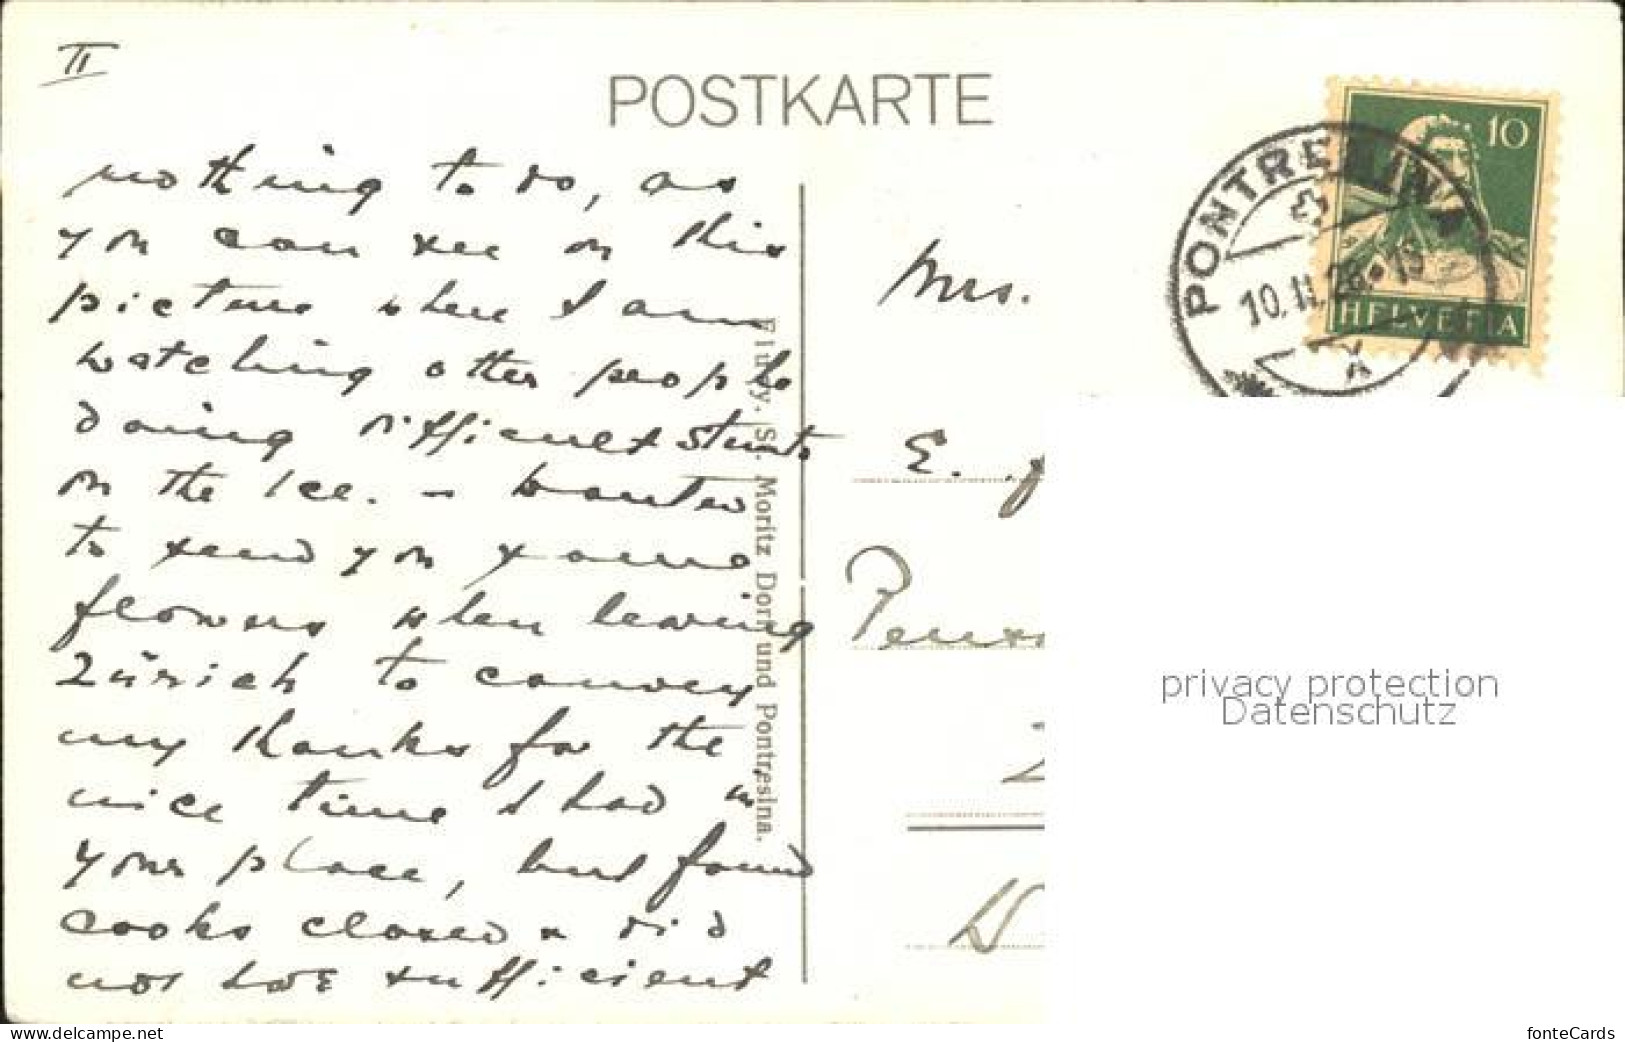 II
POSTKARTE
nothing to do, as
you can see on this
picture where I am
watching other people
doing difficult stunts
on the Ice. - Wanted
to send you some
flowers when leaving
Zürich to convey
my thanks for the
nice time I had in
your place, but found
Cooks closed & did
not have sufficient
Flury, St. Moritz Dorf und Pontresina.
10
HELVETIA
PONTRESINA
10.II.26.-19
Mrs.
E.
privacy protection
Datenschutz
www.delcampe.net
fonteCards